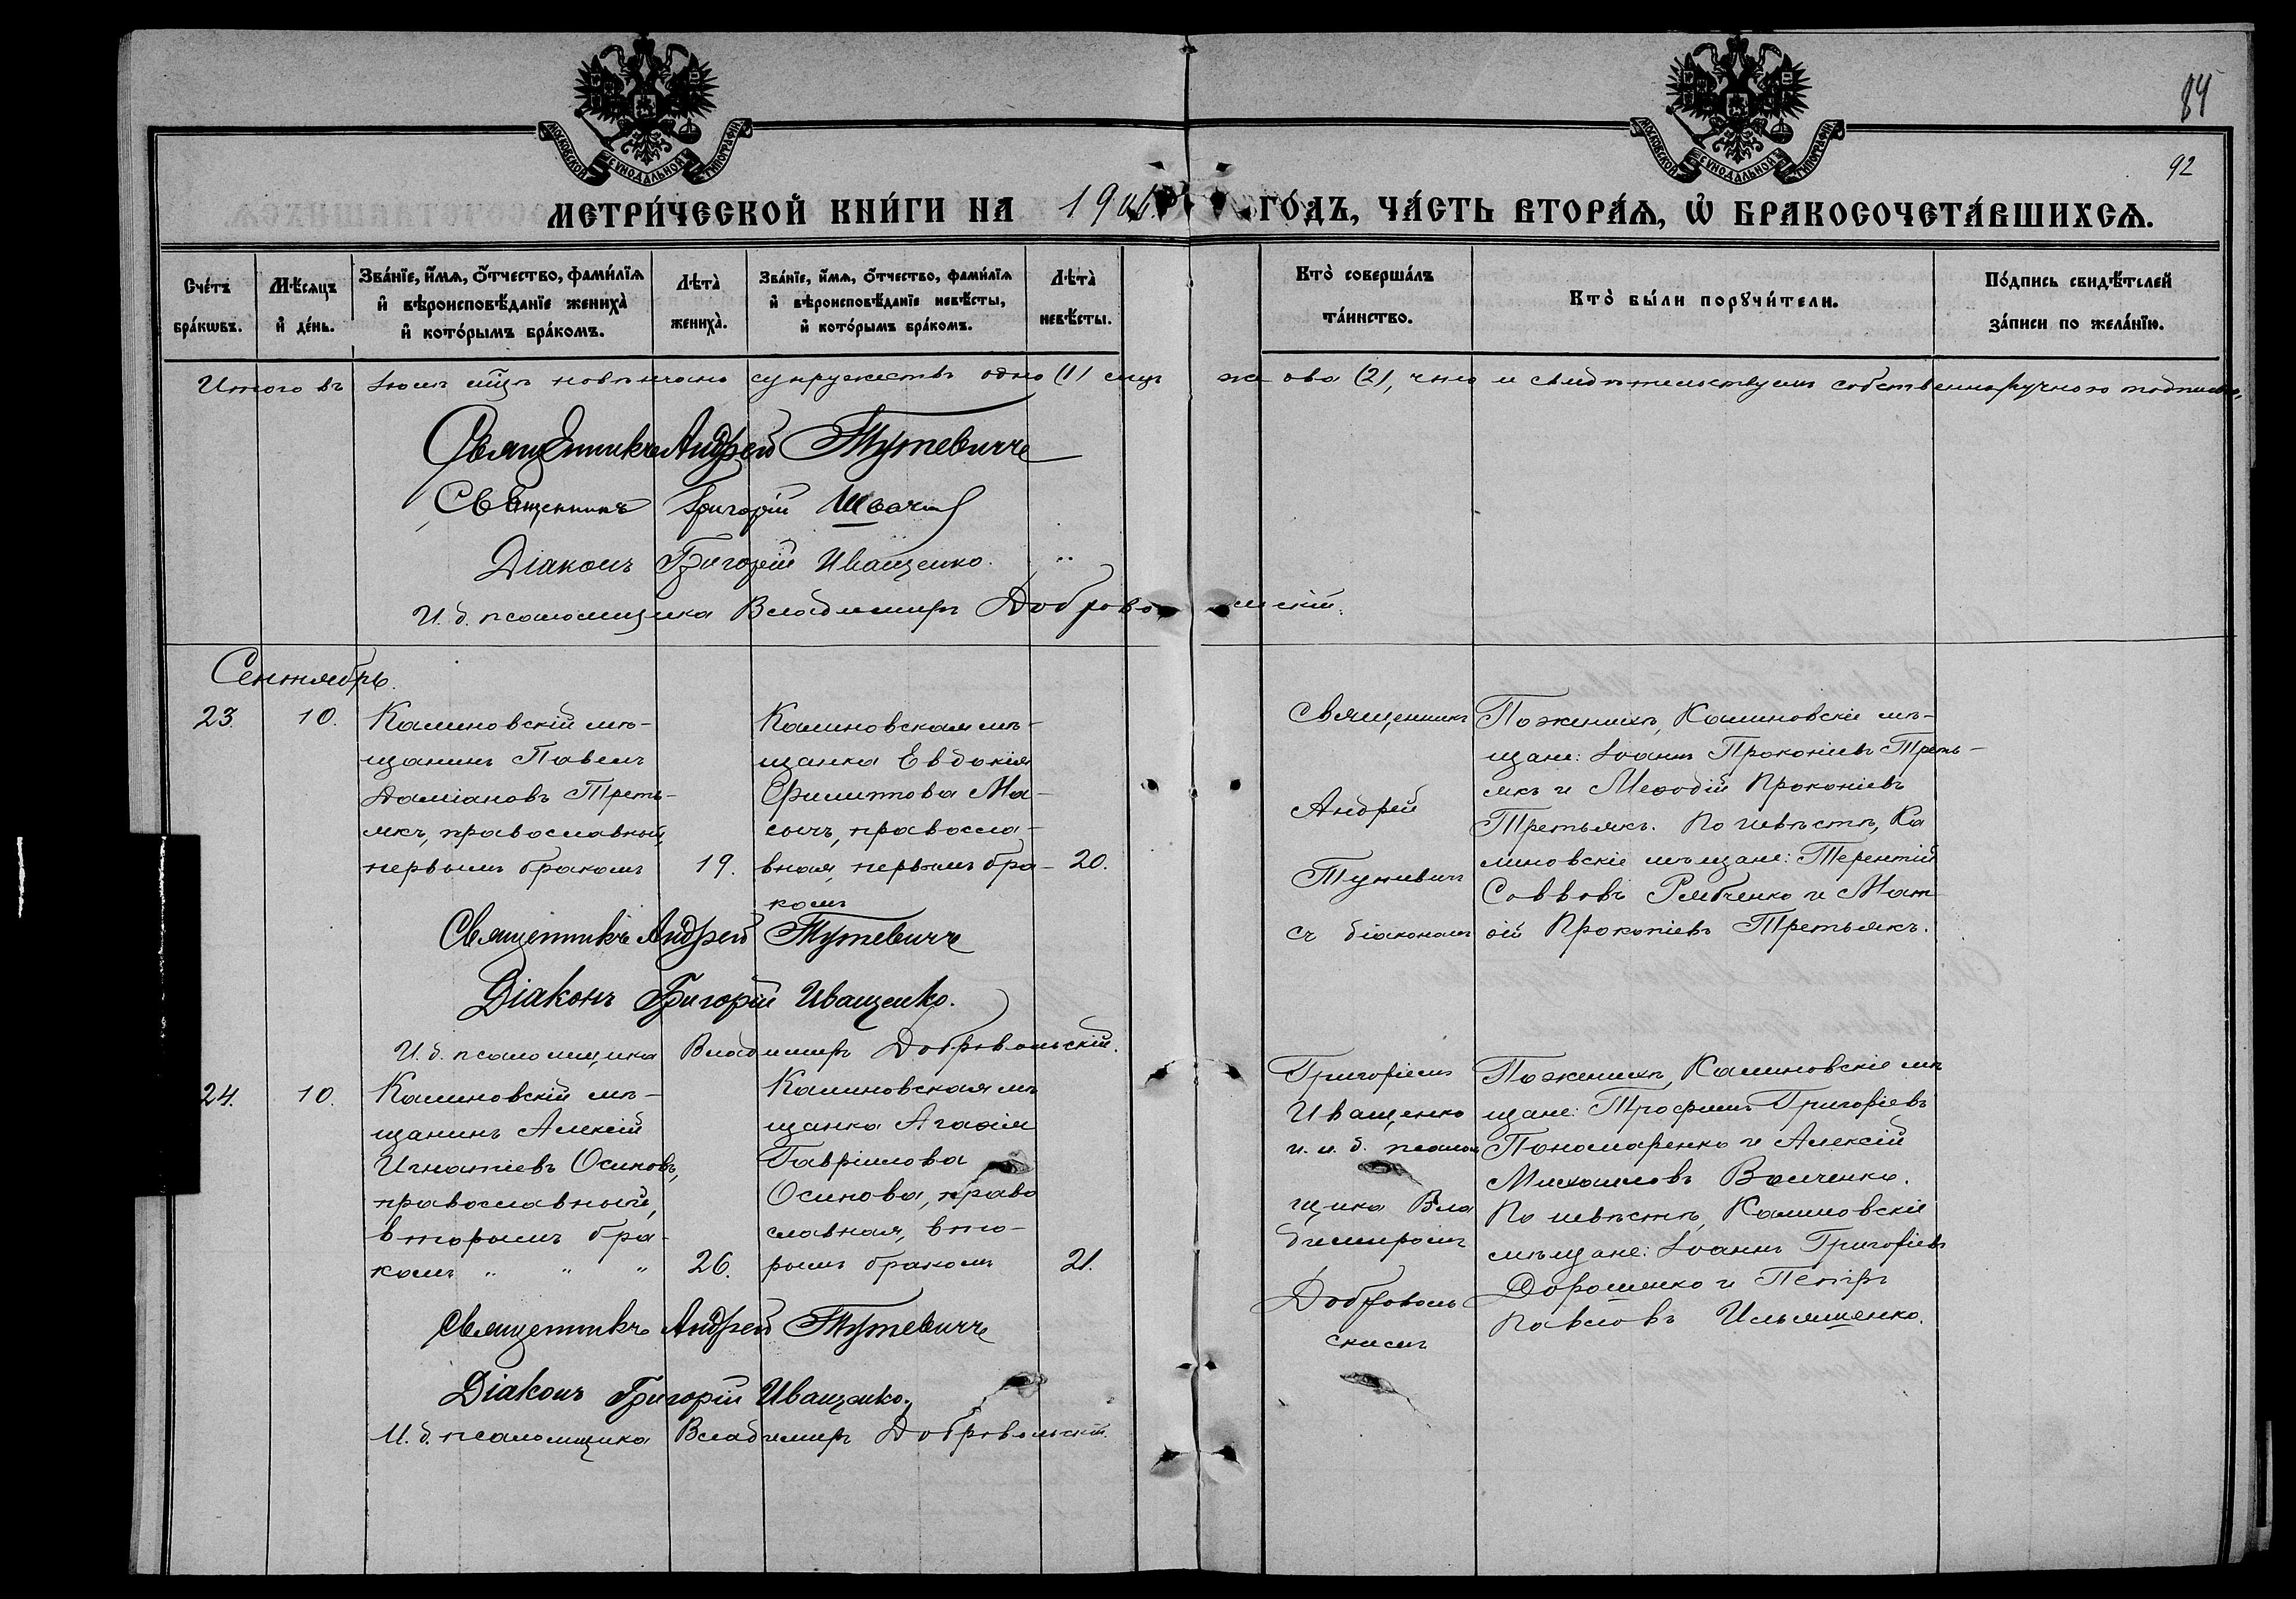 84
92
МОСКОВСКОЙ СѴНОДАЛЬНОЙ ТИПОГРАФІИ
МОСКОВСКОЙ СѴНОДАЛЬНОЙ ТИПОГРАФІИ
МЕТРИ́ЧЕСКОЙ КНИ́ГИ НА 190 ГО́ДЪ, ЧА́СТЬ ВТОРА́Ѧ, Ѡ҆ БРАКОСОЧЕТА́ВШИХСѦ.
Сче́тъ бра́кѡвъ.
Мѣ́сяцъ и҆ де́нь.
Зва́нїе, и҆́мѧ, ѻ҆́тчество, фами́лїѧ и҆ вѣроисповѣ́данїе женихà и҆ кото́рымъ бра́комъ.
Лѣтà женихà.
Зва́нїе, и҆́мѧ, ѻ҆́тчество, фами́лїѧ и҆ вѣроисповѣ́данїе невѣ́сты, и҆ кото́рымъ бра́комъ.
Лѣтà невѣ́сты.
Кто̀ соверша́лъ та́инство.
Кто̀ бы́ли порꙋчи́тели.
По́дпись свидѣ́телей за́писи по жела́нїю.
Итого въ семъ м͠цѣ повѣнчано супружествъ одно (1) лицъ же оба (2), что и свидѣтельствуемъ собственноручного подписью,
Священникъ Андрей Тутевичъ
Священникъ Григорій
Діаконъ Григорій Иващенко.
И. д. псаломщика Владимиръ Добровольскій.
Сентябрь.
23. 10.
Калиновскій мѣ-
щанинъ Павелъ
Даміановъ Треть-
якъ, православный,
первымъ бракомъ 19.
Калиновская мѣ-
щанка Евдокія
Филиппова Ма-
сычъ, правосла-
вная, первымъ бра- 20.
комъ
Священникъ
Андрей
Тутевичъ
съ діакономъ
По женихѣ, Калиновскіе мѣ-
щане: Іоаннъ Прокопіевъ Треть-
якъ и Меѳодій Прокопіевъ
Третьякъ. По невѣстѣ, Ка
линовскіе мѣщане: Терентій
Савовъ Рябченко и Мат
ѳій Прокопіевъ Третьякъ.
Священникъ Андрей Тутевичъ
Діаконъ Григорій Иващенко.
И. д. псаломщика Владимиръ Добровольскій.
24. 10.
Калиновскій мѣ-
щанинъ Алексій
Игнатіевъ Осиповъ,
православный,
вторымъ бра-
комъ " " " 26.
Калиновская мѣ
щанка Агаѳія
Гавріилова
Осипова, право
славная, вто-
рымъ бракомъ 21.
Григоріемъ
Иващенко
и. и. д. псалом
щика Вла
димиромъ
Доброволь
скимъ
По женихѣ, Калиновскіе мѣ
щане: Трофимъ Григоріевъ
Пономаренко и Алексій
Михаиловъ Вовченко.
По невѣстѣ, Калиновскіе
мѣщане: Іоаннъ Григоріевъ
Дорошенко и Петръ
Павловъ Ильяшенко.
Священникъ Андрей Тутевичъ
Діаконъ Григорій Иващенко.
И. д. псаломщика Владимиръ Добровольскій.